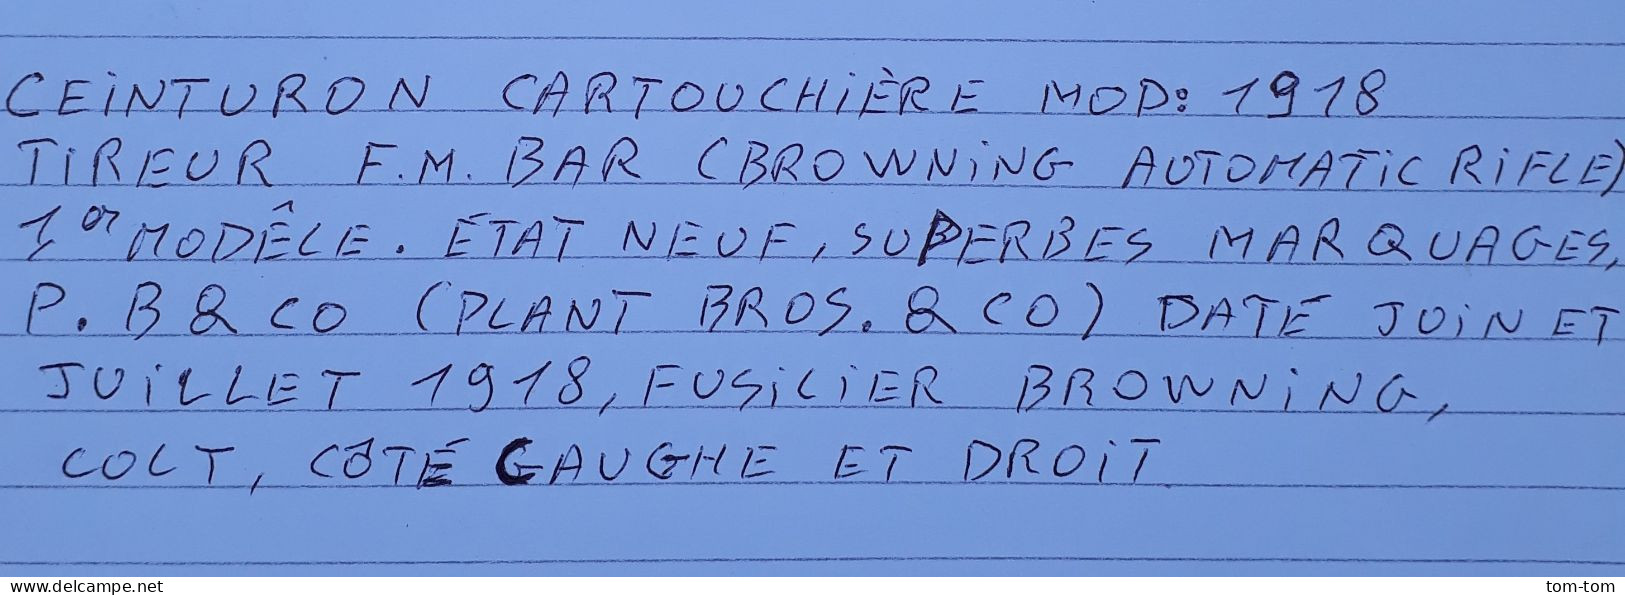 CEINTURON CARTOUCHIÈRE MOD: 1918
TIREUR F.M. BAR (BROWNING AUTOMATIC RIFLE)
1er MODÊLE. ÉTAT NEUF, SUPERBES MARQUAGES,
P. B & CO (PLANT BROS. & CO) DATÉ JUIN ET
JUILLET 1918, FUSILIER BROWNING,
COLT, CÔTÉ GAUGHE ET DROIT
www.delcampe.net
tom-tom